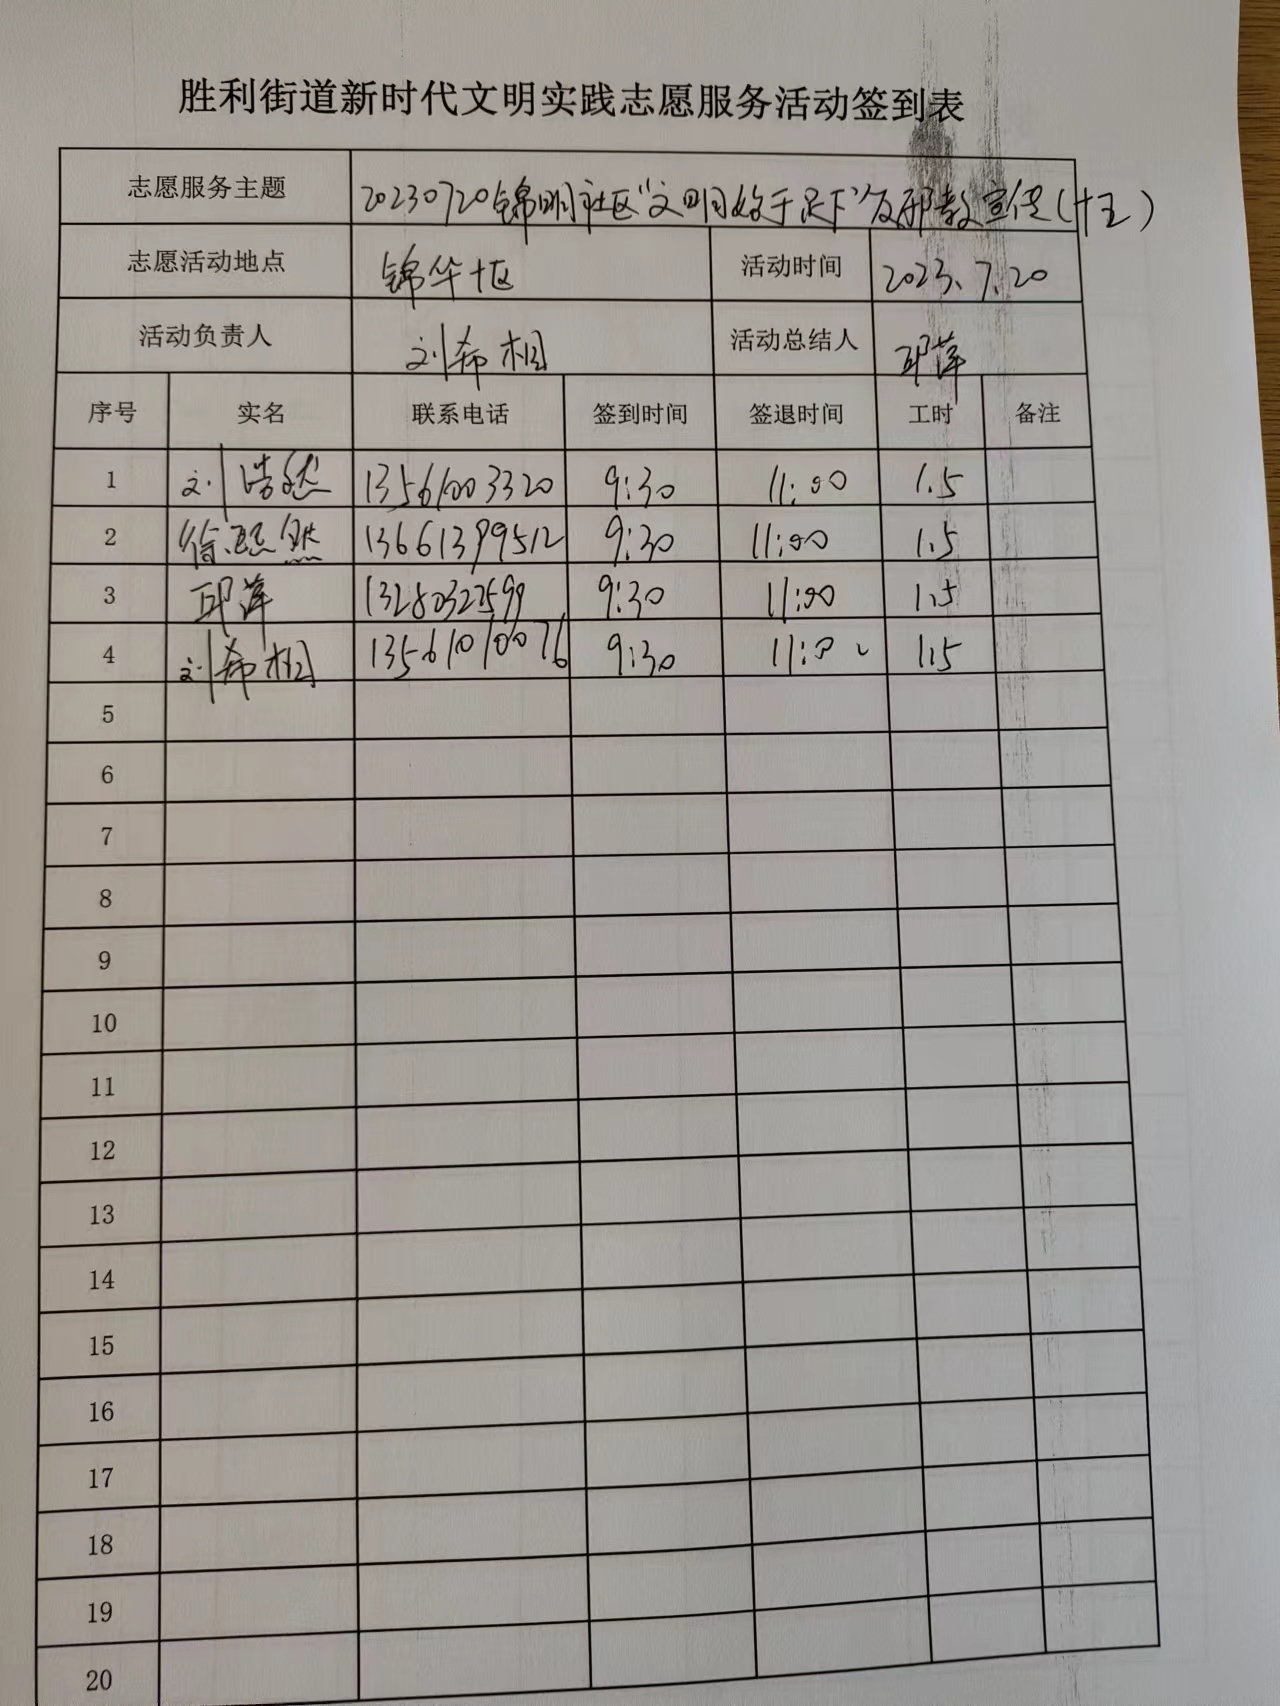 胜利街道新时代文明实践志愿服务活动签到表
志愿服务主题 20230720锦明社区“文明始于足下”反邪教宣传(十五)
志愿活动地点 锦华十区 活动时间 2023.7.20
活动负责人 刘希相 活动总结人 邱萍
序号 实名 联系电话 签到时间 签退时间 工时 备注
1 刘浩然 13561003320 9:30 11:00 1.5
2 徐熙然 13661399512 9:30 11:00 1.5
3 邱萍 13280322599 9:30 11:00 1.5
4 刘希相 13561010076 9:30 11:00 1.5
5
6
7
8
9
10
11
12
13
14
15
16
17
18
19
20